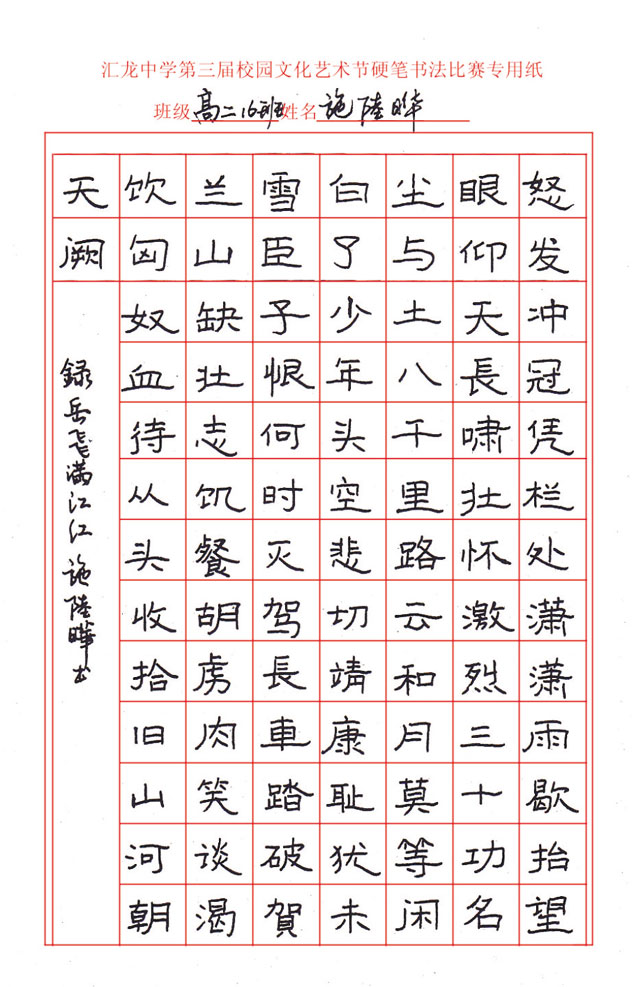 汇龙中学第三届校园文化艺术节硬笔书法比赛专用纸
班级高二16班姓名施陸晔
怒发冲冠凭栏处潇潇雨歇抬望
眼仰天長啸壮怀激烈三十功名
尘与土八千里路云和月莫等闲
白了少年头空悲切靖康耻犹未
雪臣子恨何时灭驾長車踏破賀
兰山缺壮志饥餐胡虏肉笑谈渴
饮匈奴血待从头收拾旧山河朝
天阙
録岳飞满江红施陸晔书